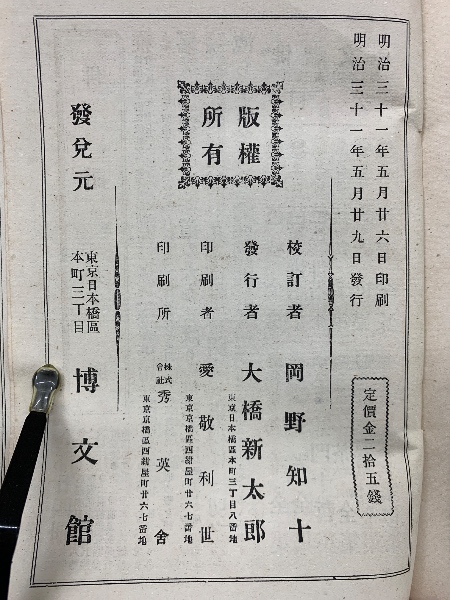 明治三十一年五月廿六日印刷
明治三十一年五月廿九日發行
定價金二拾五錢
版權
所有
校訂者 岡野知十
發行者 大橋新太郎
東京日本橋區本町三丁目八番地
印刷者 愛敬利世
東京京橋區西紺屋町廿六七番地
印刷所 株式會社 秀英舍
東京京橋區西紺屋町廿六七番地
發兌元 東京日本橋區本町三丁目 博文館